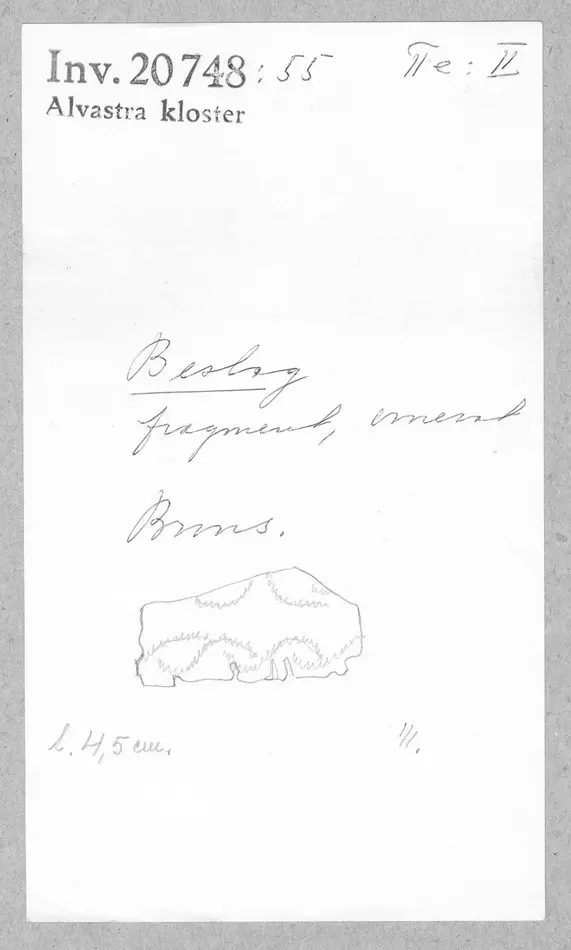 Inv. 20748:55 
Πe: II
Alvastra kloster
Beslag
fragment, ornerat
Brons.
L. 4,5 cm.
1/1.